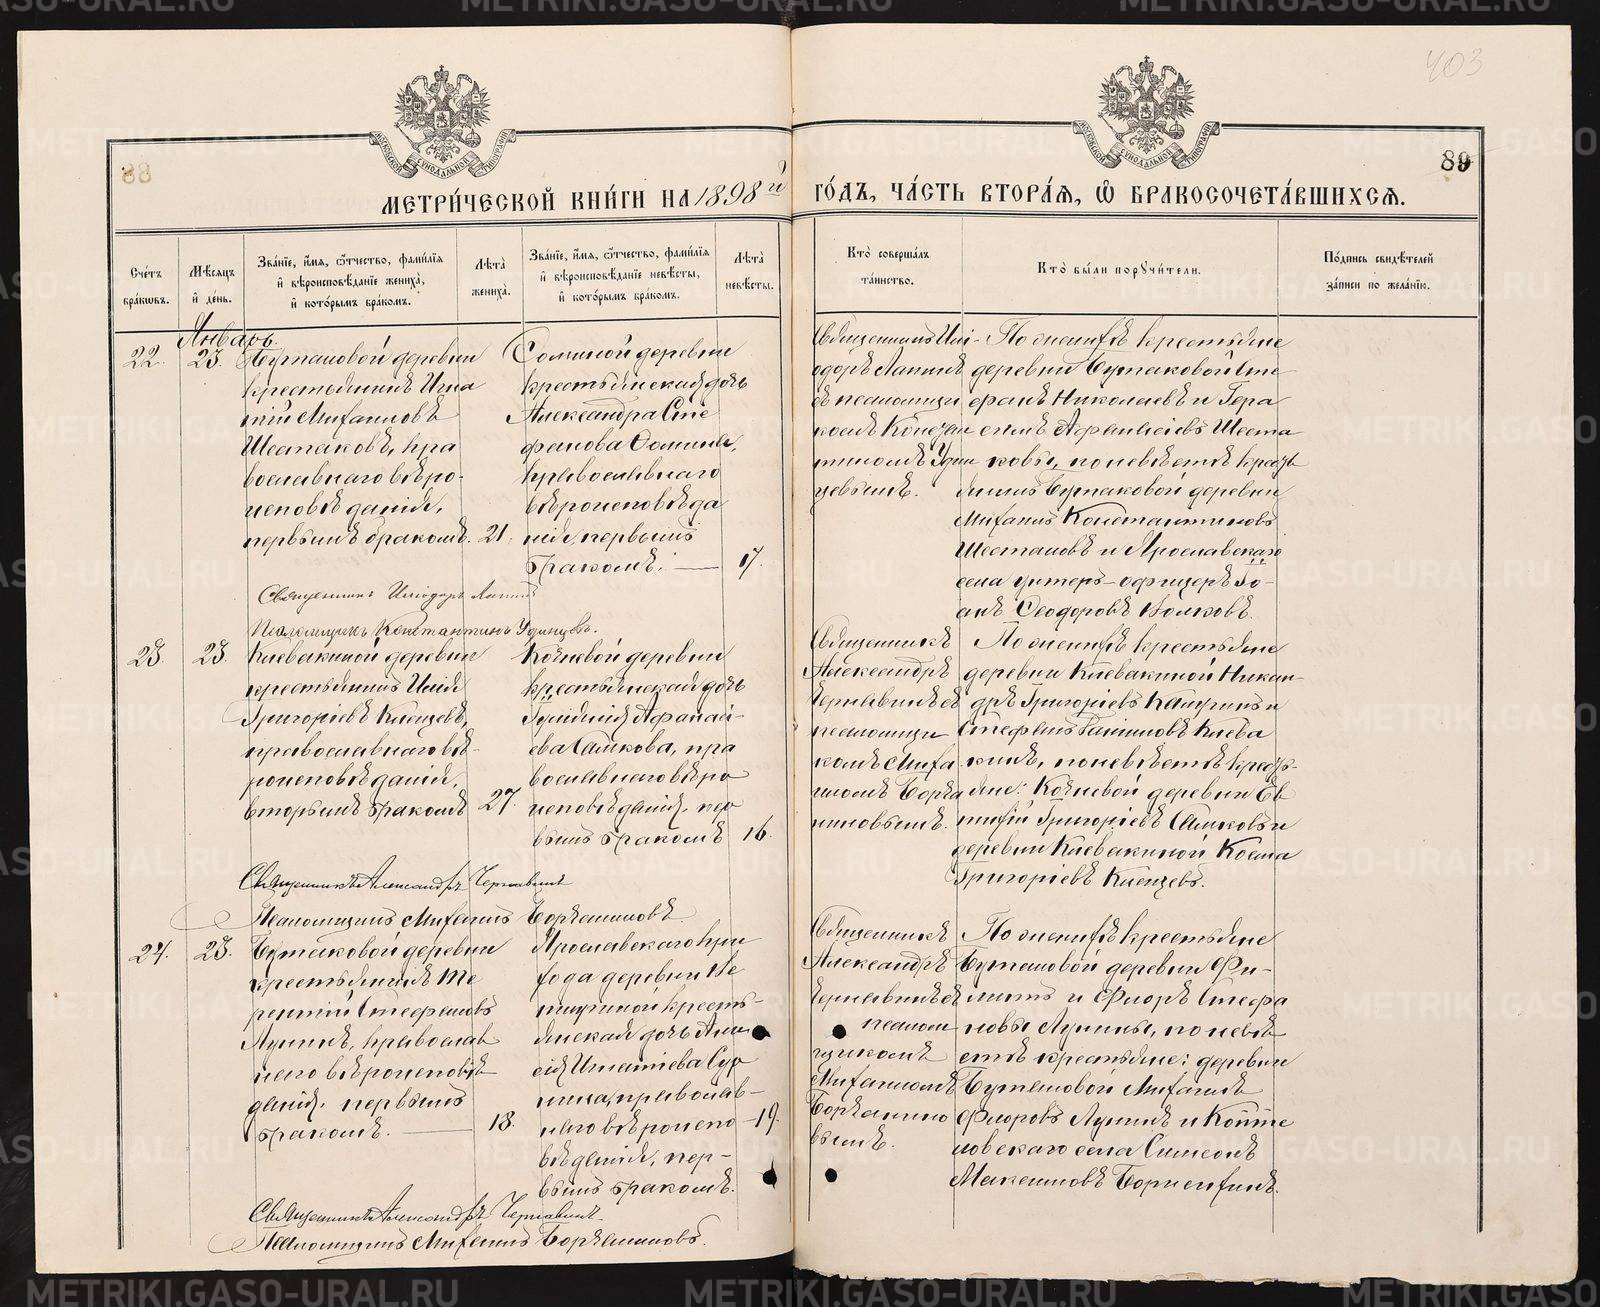 403
88
89
МЕТРИ́ЧЕСКОЙ КНИ́ГИ НА 1898й ГО́ДЪ, ЧА́СТЬ ВТОРА́Я, Ѿ БРАКОСОЧЕТА́ВШИХСЯ.
Сче́тъ бра́кѡвъ.
Мѣсяцъ и́ де́нь.
Зва́нїе, и́мя, ѻ́тчество, фами́лїя и́ вѣроисповѣ́данїе жениха̀, и́ кото́рымъ бра́комъ.
Лѣта̀ жениха̀.
Зва́нїе, и́мя, ѻ́тчество, фами́лїя и́ вѣроисповѣ́данїе невѣ́сты, и́ кото́рымъ бра́комъ.
Лѣта̀ невѣ́сты.
Кто̀ соверша́лъ та́инство.
Кто̀ бы́ли поручи́тели.
По́дпись свидѣ́телей за́писи по жела́нїю.
Январь
22.
23.
Бутаковой деревни
крестьянинъ Игна
тій Михаиловъ
Шестаковъ, пра
вославнаго вѣро-
исповѣданія,
первымъ бракомъ.
21.
Соминой деревни
крестьянская дочь
Александра Сте
фанова Сомина,
православнаго
вѣроисповѣда
нія, первымъ
бракомъ.
17.
Священникъ Иліо-
доръ Лапинъ
съ псаломщи
комъ Констан
тиномъ Удин
цевымъ.
По женихѣ крестьяне
деревни Бутаковой Сте
фанъ Николаевъ и Гера
симъ Афанасіевъ Шеста
ковы, по невѣстѣ кресть
янинъ Бутаковой деревни
Михаилъ Константиновъ
Шестаковъ и Ярославскаго
села унтеръ-офицеръ Іо-
анъ Ѳеодоровъ Волковъ.
Священникъ Иліодоръ Лапинъ
Псаломщикъ Константинъ Удинцевъ.
23.
23.
Клевакиной деревни
крестьянинъ Илія
Григоріевъ Клепцевъ,
православнаго вѣ-
роисповѣданія,
вторымъ бракомъ
27
Кочневой деревни
крестьянская дочь
Іуліанія Афанасі-
ева Самкова, пра
вославнаго вѣро
исповѣданія, пер
вымъ бракомъ
16.
Священникъ
Александръ
Чернавинъ съ
псаломщи
комъ Миха
иломъ Борча
ниновымъ.
По женихѣ крестьяне
деревни Клевакиной Никан-
дръ Григоріевъ и
Стефанъ Клева
кинъ, по невѣстѣ кресть-
яне: Кочневой деревни Ев
тифій Григоріевъ Самковъ и
деревни Клевакиной Косма
Григоріевъ Клепцевъ.
Священникъ Александръ Чернавинъ
Псаломщикъ Михаилъ Борчаниновъ.
24.
23.
Бутаковой деревни
крестьянинъ Те
рентій Стефановъ
Лупинъ, православ
наго вѣроисповѣ
данія, первымъ
бракомъ.
18.
Ярославскаго при
хода деревни Не
крестъ-
янская дочь Ана
сія Игнатіева Сур
нина, православ-
наго вѣроиспо
вѣданія, пер-
вымъ бракомъ.
19.
Священникъ
Александръ
Чернавинъ съ
псалом
щикомъ
Михаиломъ
Борчанино
вымъ.
По женихѣ крестьяне
Бутаковой деревни Фи-
липъ и Флоръ Стефа
новы Лупины, по невѣ
стѣ крестьяне: деревни
Бутаковой Михаилъ
Флоровъ Лупинъ и Копте
ловскаго села Симеонъ
Максимовъ Борисихинъ.
Священникъ Александръ Чернавинъ.
Псаломщикъ Михаилъ Борчаниновъ.
METRIKI.GASO-URAL.RU